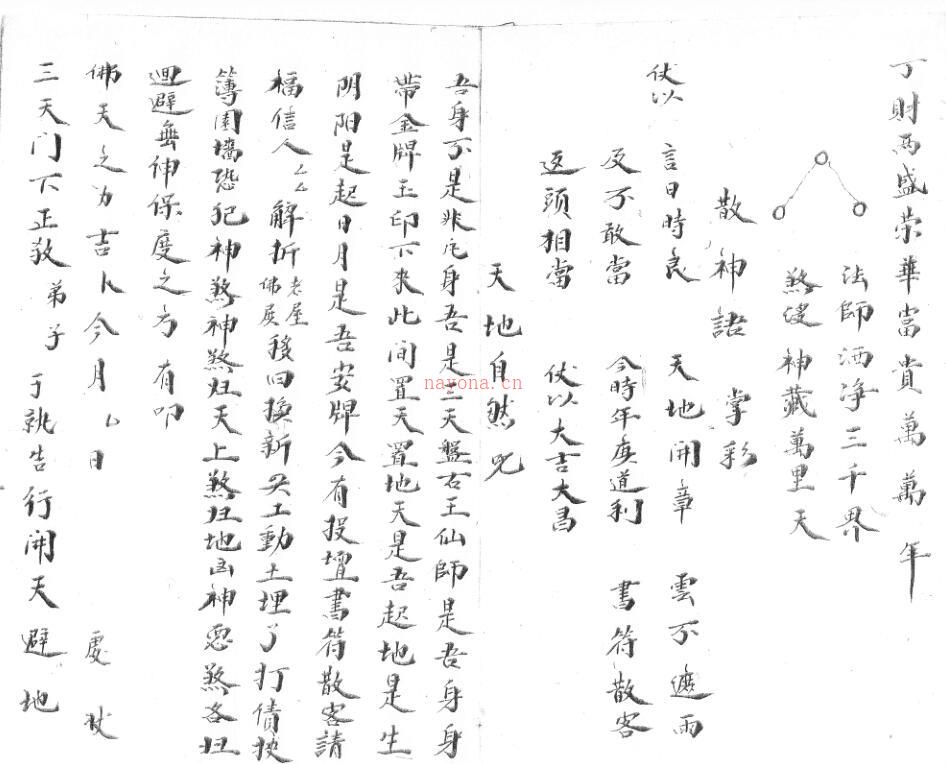 丁財両盛荣華當貴萬萬年
法師洒净三千界
煞 神藏萬里天
散神語 掌彩
伏以 言日時良 天地開章 雲不遮雨
反不敢當 今時年庚道利 書符散客
返頭相當 伏以大吉大昌
天地自然咒
吾身不是非凡身吾是三天盤古王仙師是吾身身
帶金牌玉印下來此间置天置地天是吾起地是生
阴阳是起日月是吾安牌今有投壇書符散客請
福信人厶厶解折老屋佛屋移旧换新 工動土埋 打債
簿園墻恐犯神煞神煞归天上煞归地凶神恶煞各归
迴避 神保度之方有叩
佛天之为吉卜今月 日 處
三天门下正教弟子 于 告行開天避地
nayona.cn